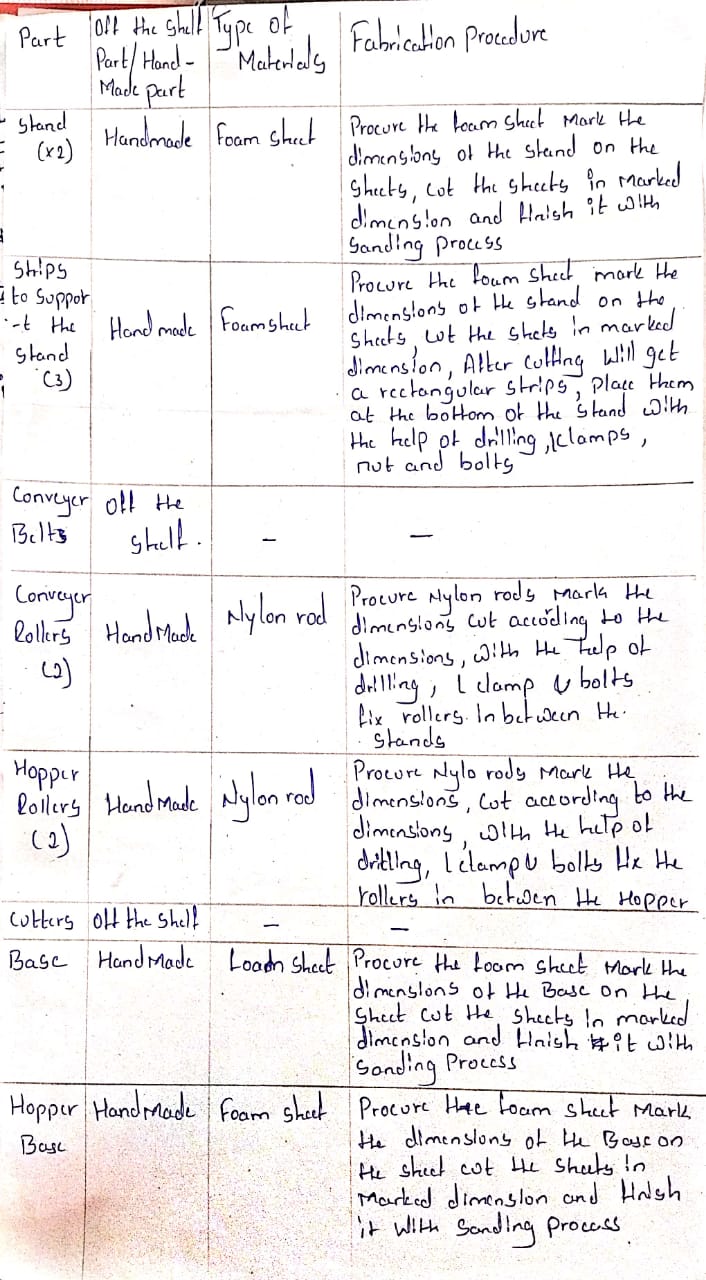 Part
Off the Shelf
Part/Hand-
Made part
Type of
Materials
Fabrication Procedure
Stand
(x2)
Handmade
Foam sheet
Procure the foam sheet Mark the
dimensions of the stand on the
sheets, cut the sheets in marked
dimension and finish it with
Sanding process
Strips
to Suppor
-t the
Stand
(3)
Hand made
Foam sheet
Procure the foam sheet mark the
dimensions of the stand on the
sheets, cut the shets in marked
dimension, After cutting will get
a rectangular strips, place them
at the bottom of the stand with
the help of drilling, l clamps,
nut and bolts
Conveyer
Belts
Off the
shelf.
-
-
Conveyer
Rollers
(2)
Hand Made
Nylon rod
Procure Nylon rods Mark the
dimensions cut according to the
dimensions, with the help of
drilling, L clamp & bolts
fix rollers. In between the.
stands
Hopper
Rollers
(2)
Hand Made
Nylon rod
Procure Nylo rods Mark the
dimensions, cut according to the
dimensions, with the help of
drilling, L clamp & bolts fix the
rollers in betwen the Hopper
Cutters
Off the shelf
-
-
Base
Hand Made
Procure the foam sheet Mark the
dimensions of the Base on the
Sheet cut the sheets in marked
dimension and finish it with
Sanding Process
Hopper
Base
Hand Made
Foam sheet
Procure the foam sheet Mark
the dimensions of the Base on
the sheet cut the sheets in
Marked dimension and finish
it with Sanding process